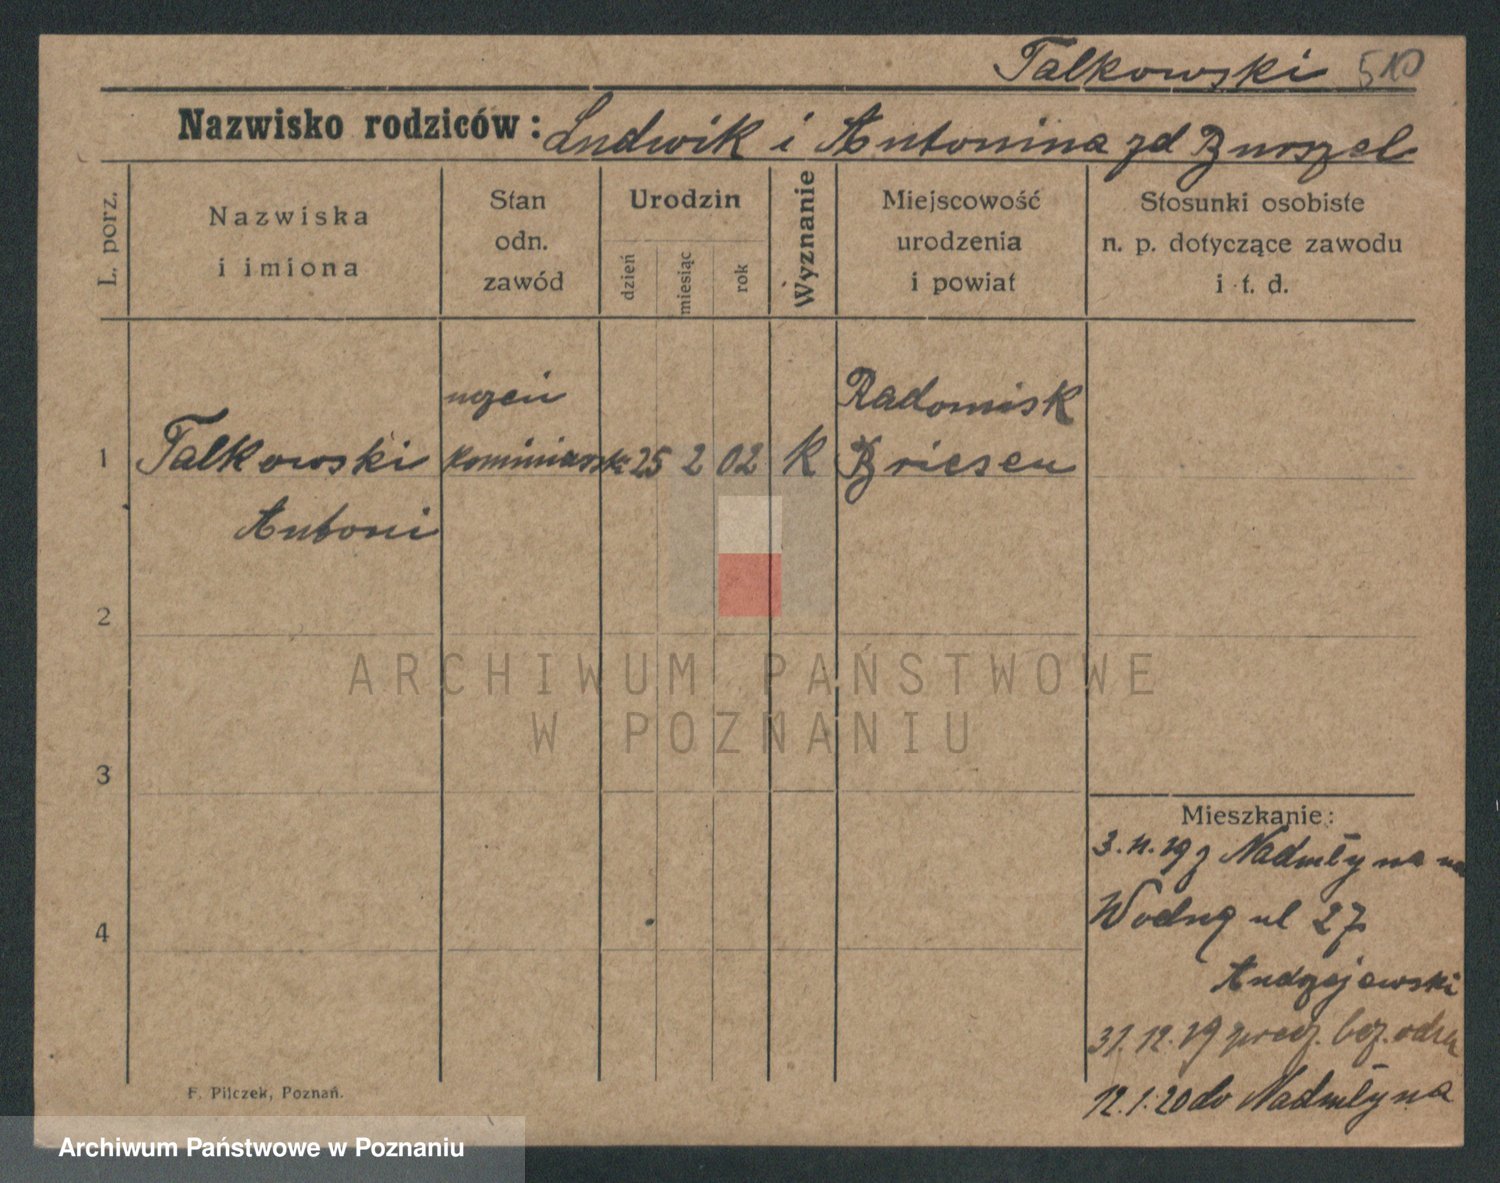 Talkowski 510
Nazwisko rodziców: Ludwik i Antonina zd Burszel
L. porz.
Nazwiska
i imiona
Stan
odn.
zawód
Urodzin
dzień
miesiąc
rok
Wyznanie
Miejscowość
urodzenia
i powiat
Stosunki osobiste
n. p. dotyczące zawodu
i t. d.
uczeń
Radomisk
1 Talkowski kominiarski 25 2 02 K Briesen
Antoni
2
3
4
ARCHIWUM PAŃSTWOWE
W POZNANIU
Mieszkanie:
3.11.19 z Nadmłyna na
Wodną ul 27
Andrzejewski
31.12.19
12.1.20 do Nadmłyna
F. Pilczek, Poznań.
Archiwum Państwowe w Poznaniu